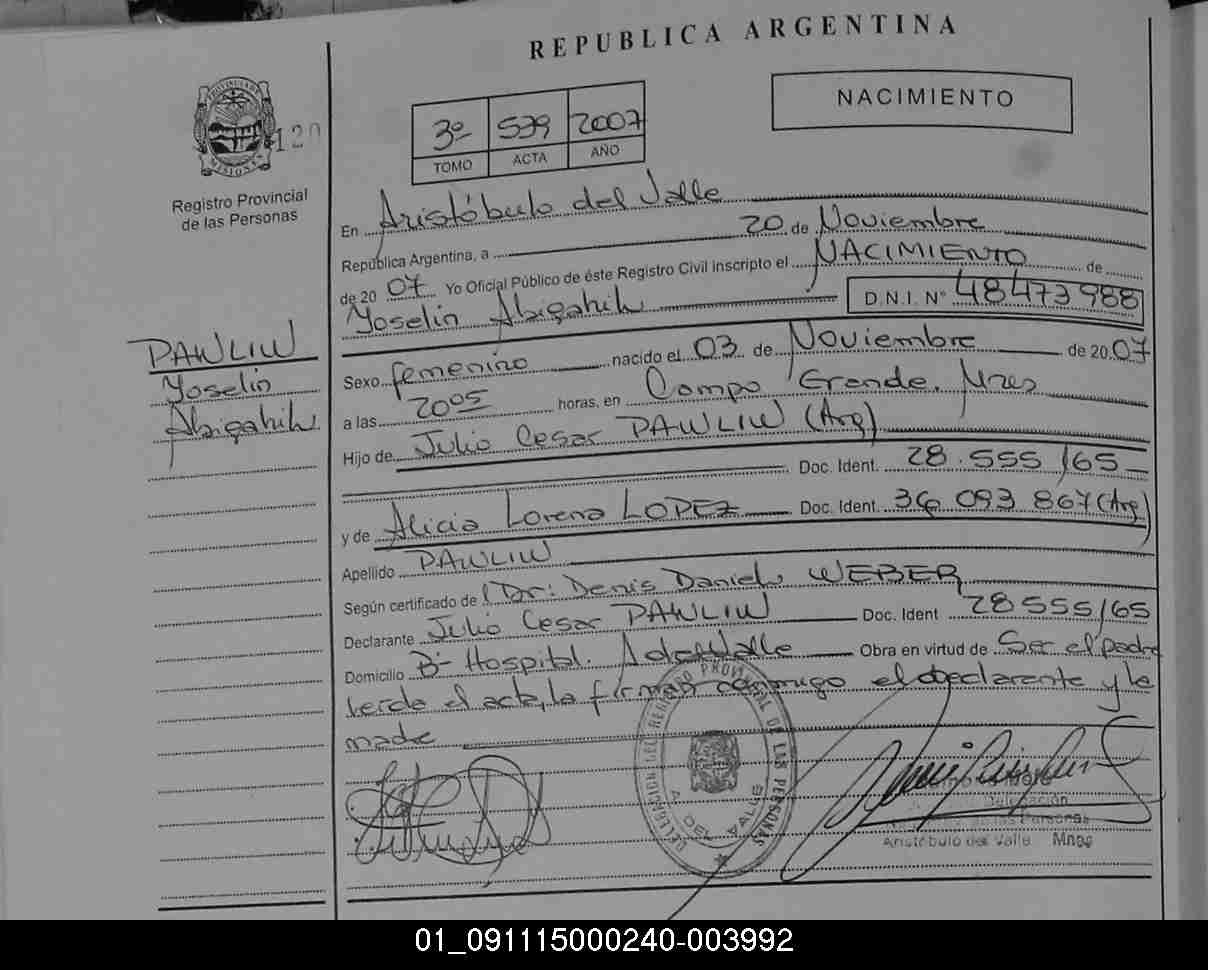 REPUBLICA ARGENTINA
NACIMIENTO
3º 579 2007
TOMO ACTA AÑO
120
MISIONES
Registro Provincial
de las Personas
En Aristóbulo del Valle
República Argentina, a 20 de Noviembre
de 20 07 Yo Oficial Público de éste Registro Civil inscripto el NACIMIENTO de
Yoselin Abigahil D.N.I. Nº 48473988
PAWLIW
Yoselin
Abigahil
Sexo femenino nacido el 03 de Noviembre de 20 07
a las 2005 horas, en Campo Grande, Mnes
Hijo de Julio Cesar PAWLIW (Arg)
Doc. Ident. 28.555 165
y de Alicia Lorena LOPEZ Doc. Ident. 36 093 867 (Arg)
Apellido PAWLIW
Según certificado de Dr: Denis Daniel WEBER
Declarante Julio Cesar PAWLIW Doc. Ident 28 555 165
Domicilio Bº Hospital. A del Valle Obra en virtud de Ser el padre
Leida el acta, la firman conmigo el declarante y la
madre
DELEGACION DEL REGISTRO PROVINCIAL DE LAS PERSONAS
A. DEL VALLE
Delegación
de las Personas
Aristóbulo del Valle Mnes
01_091115000240-003992